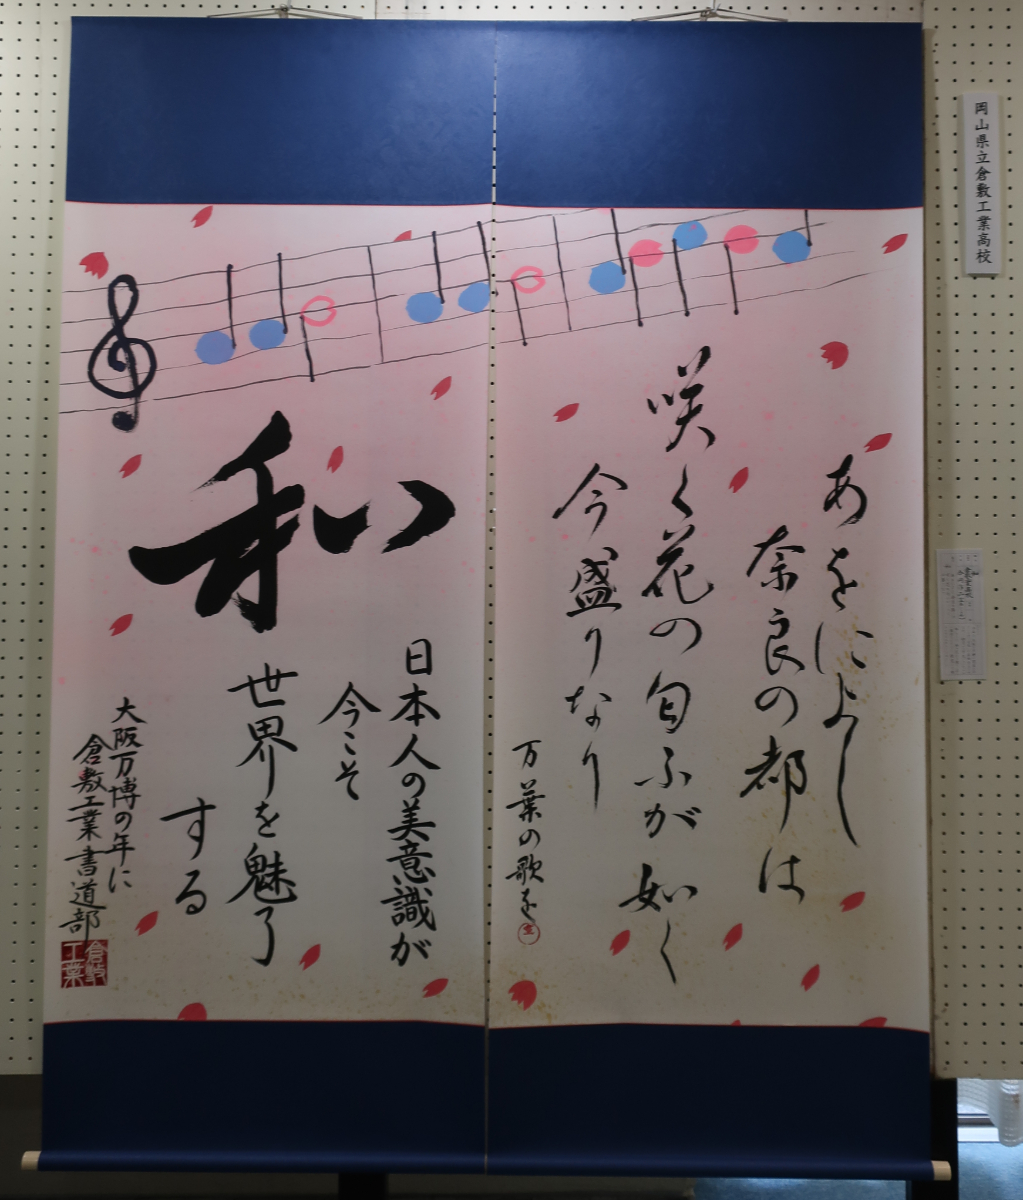 岡山県立倉敷工業高校
あをによし
奈良の都は
咲く花の匂ふが如く
今盛りなり
万葉の歌を
和
日本人の美意識が
今こそ
世界を魅了
する
大阪万博の年に
倉敷工業書道部
倉敷
工業